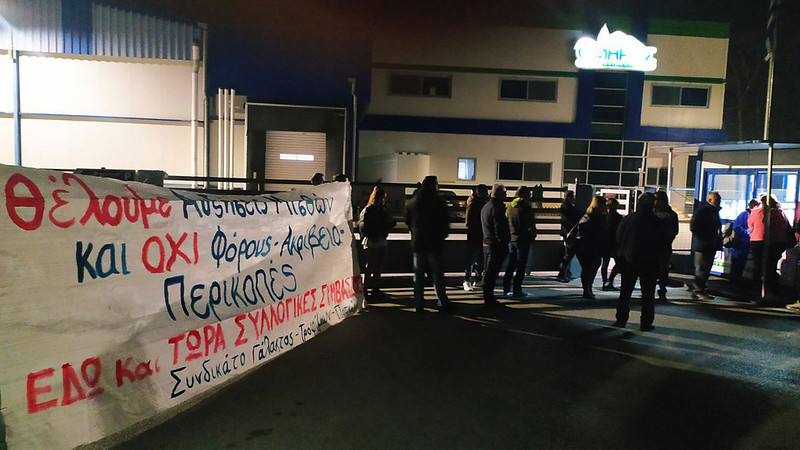 Θέλουμε Αυξήσεις Μισθών
και ΟΧΙ Φόρους-Ακρίβεια-
Περικοπές
ΕΔΩ και ΤΩΡΑ ΣΥΛΛΟΓΙΚΕΣ ΣΥΜΒΑΣ
Συνδικάτο Γάλακτος-Τροφίμων-